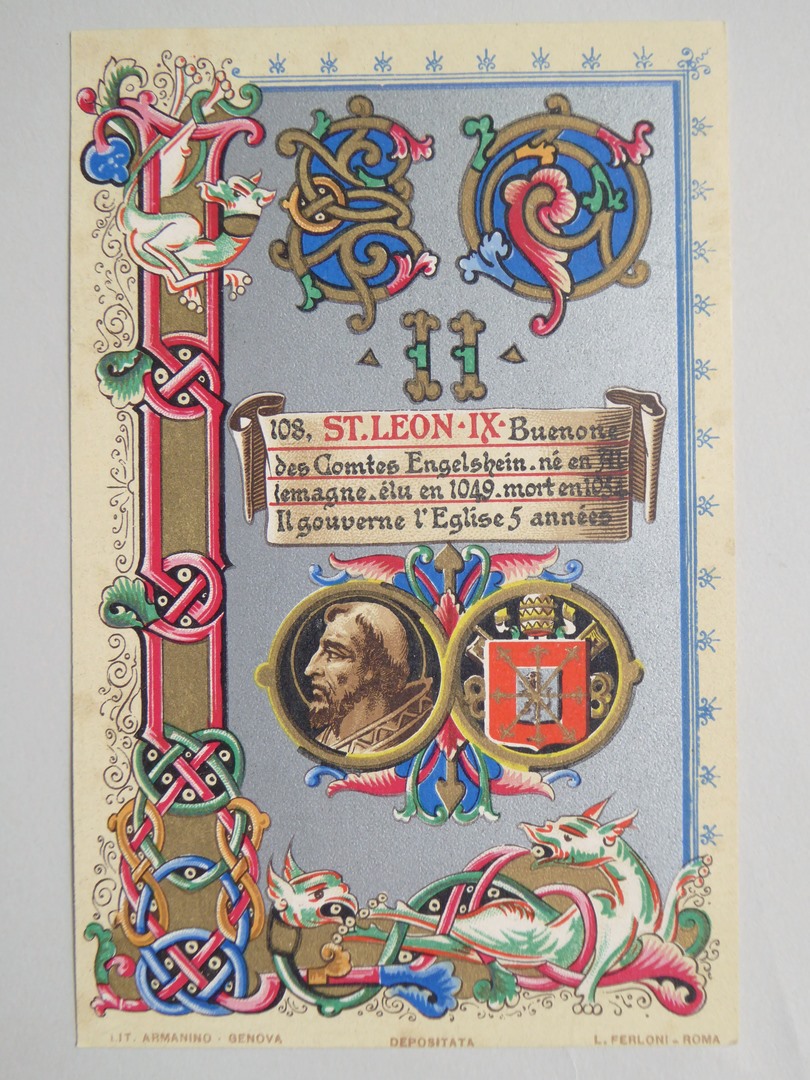 LEO
II
108, ST. LEON · IX · Buenone
des Comtes Engelshein. né en Al
lemagne. élu en 1049. mort en 1054
Il gouverne l'Eglise 5 années
LIT. ARMANINO - GENOVA DEPOSITATA L. FERLONI - ROMA